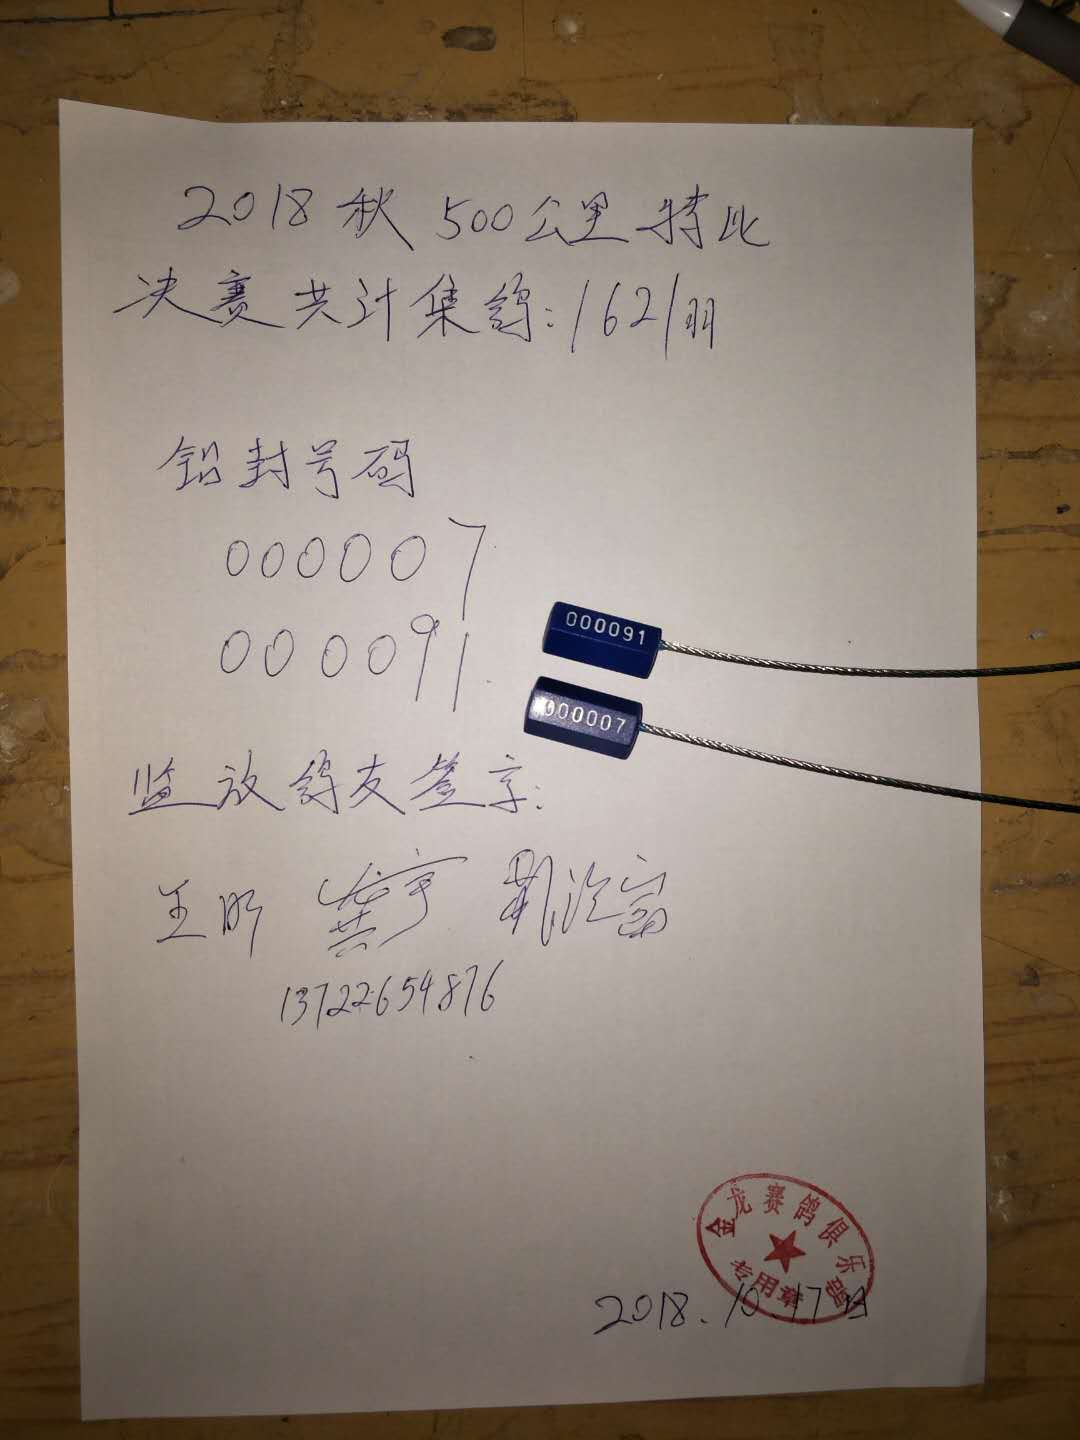 2018秋500公里特比
决赛共计集鸽:1621羽
铅封号码
000007
000091
000091
000007
监放鸽友签字:
王明 龚宁
13722654876
金龙赛鸽俱乐部
专用章
2018.10.17日